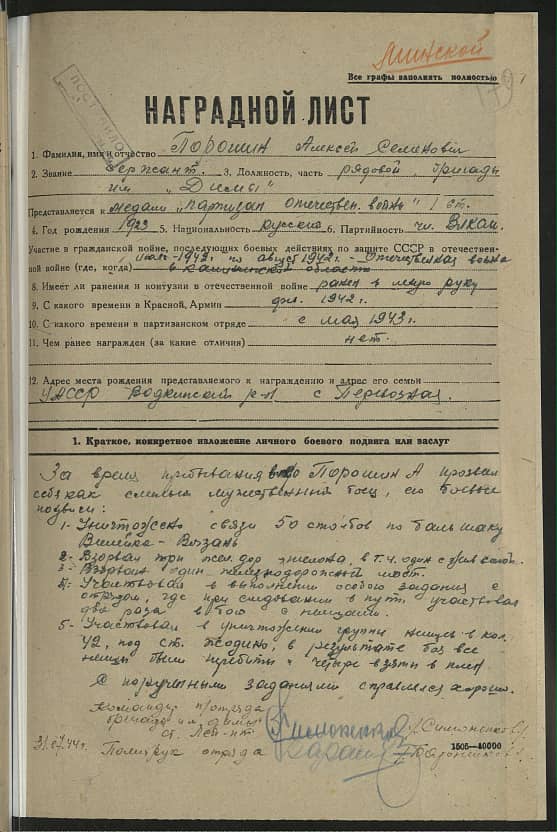 Минской
Все графы заполнять полностью
НАГРАДНОЙ ЛИСТ
1. Фамилия, имя и отчество Порошин Алексей Семенович
2. Звание Сержант. 3. Должность, часть рядовой, бригады
им. „Димы"
Представляется к медали „партизан отечествен. войны" I ст.
4. Год рождения 1923 5. Национальность русский 6. Партийность чл. ВЛКСМ.
Участие в гражданской войне, последующих боевых действиях по защите СССР в отечествен-
ной войне (где, когда) 1942г. по август 1942г. - Отечественная война
в Калининской области
8. Имеет ли ранения и контузии в отечественной войне ранен в левую руку
9. С какого времени в Красной, Армии 1942г.
10. С какого времени в партизанском отряде с мая 1943г.
11. Чем ранее награжден (за какие отличия) нет.
12. Адрес места рождения представляемого к награждению и адрес его семьи
УАССР Воткинский р-н с Перевозная.
1. Краткое, конкретное изложение личного боевого подвига или заслуг
За время пребывания Порошин А проявил
себя как смелый мужественный боец, его боевые
подвиги:
1- Уничтожено связи 50 столбов по большаку
Вилейка - Вязынь
2- Взорвал три жел. дор эшелона, в т.ч. один с
3- Взорван один железнодорожный мост.
4- Участвовал в выполнении особого задания с
отрядом, где при следовании в пути участвовал
два раза в бою с немцами.
5- Участвовал в уничтожении группы немцев в кол.
42, под ст. Жодино, в результате боя все
немцы были перебиты и четыре взяты в плен
С порученными заданиями справлялся хорошо.
Командир п/отряда
бригады им. Димы
ст. Лей-нт Симоненко
31.07.44г. Политрук отряда
1505—10000